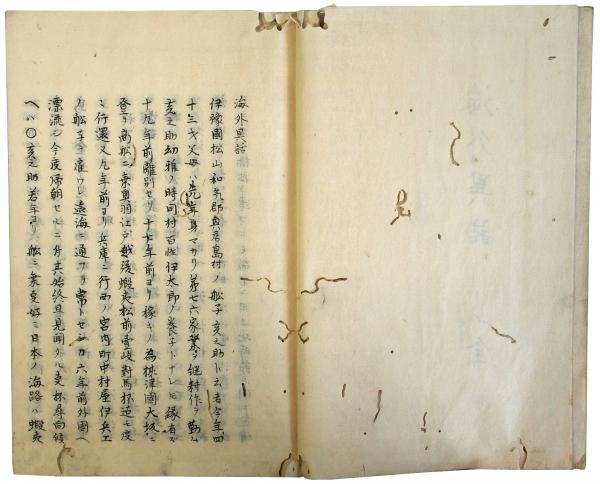 海外異話
伊豫國松山和気郡奥居島村ノ船子亥之助ト云者今年四
十三才父母ハ先年身マカリ弟七六家業ヲ継耕作ヲ勤ム
亥之助幼雅ノ時同村百姓伊太郎ノ養子トナレトモ縁有
十九年前離別セリ十七年前ヨリ稼キノ為摂津國大坂ニ
登リ商船ニ乗奥羽江戸越後蝦夷松前壹岐對馬杯迄七度
ニ行還又九年前ヨリ兵庫ニ行西ノ宮内町中村屋伊兵エ
カ船子ニ雇ワレ遠海ニ通フヲ常トセシカ六年前外國ヘ
漂流シ今度帰朝セルニ付其始終且見聞タル支杯尋向候
ヘハ〇亥之助若年ヨリ船ニ乗支好ミ日本ノ海路ハ蝦夷